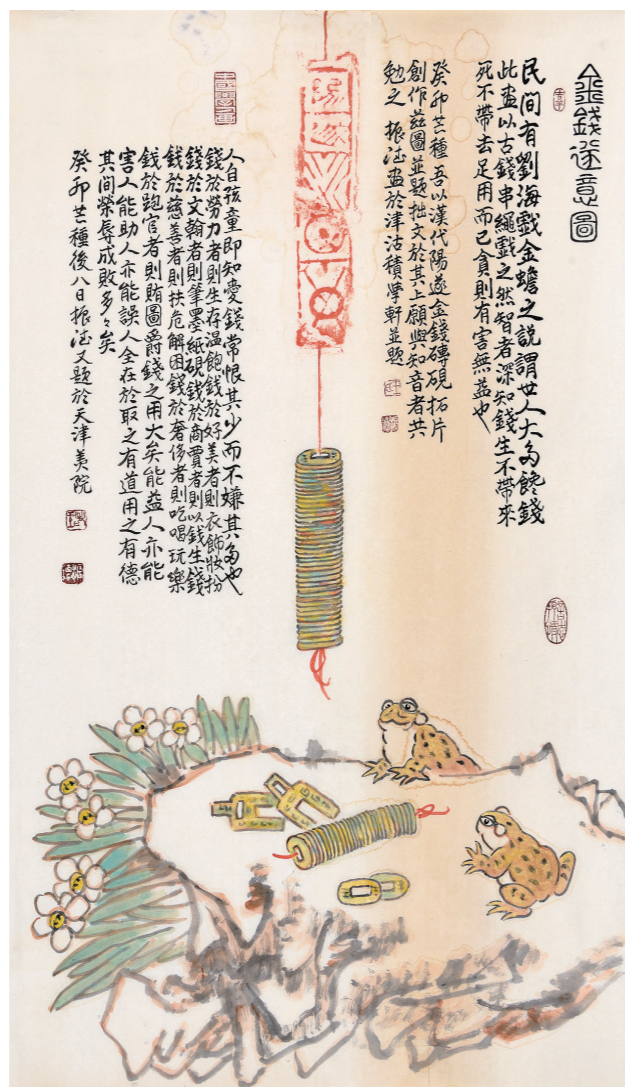 金錢遂意圖
民间有劉海戲金蟾之説謂世人大多饞錢
此畫以古錢串繩戲之然智者深知錢生不帶來
死不帶去足用而已貪則有害無益也
癸卯芒種吾以漢代陽遂金錢磚硯拓片
創作兹圖並題拙文於其上願與知音者共
勉之 振法畫於津沽積學軒並題
人自孩童即知愛錢常恨其少而不嫌其多也
錢於勞力者則生存温飽錢於好美者則衣飾妝扮
錢於文翰者則筆墨紙硯錢於商賈者則以錢生錢
錢於慈善者則扶危解困錢於奢侈者則吃喝玩樂
錢於跑官者則賄圖爵錢之用大矣能益人亦能
害人能助人亦能誤人全在於取之有道用之有德
其间榮辱成敗多々矣
癸卯芒種後八日振法又題於天津美院